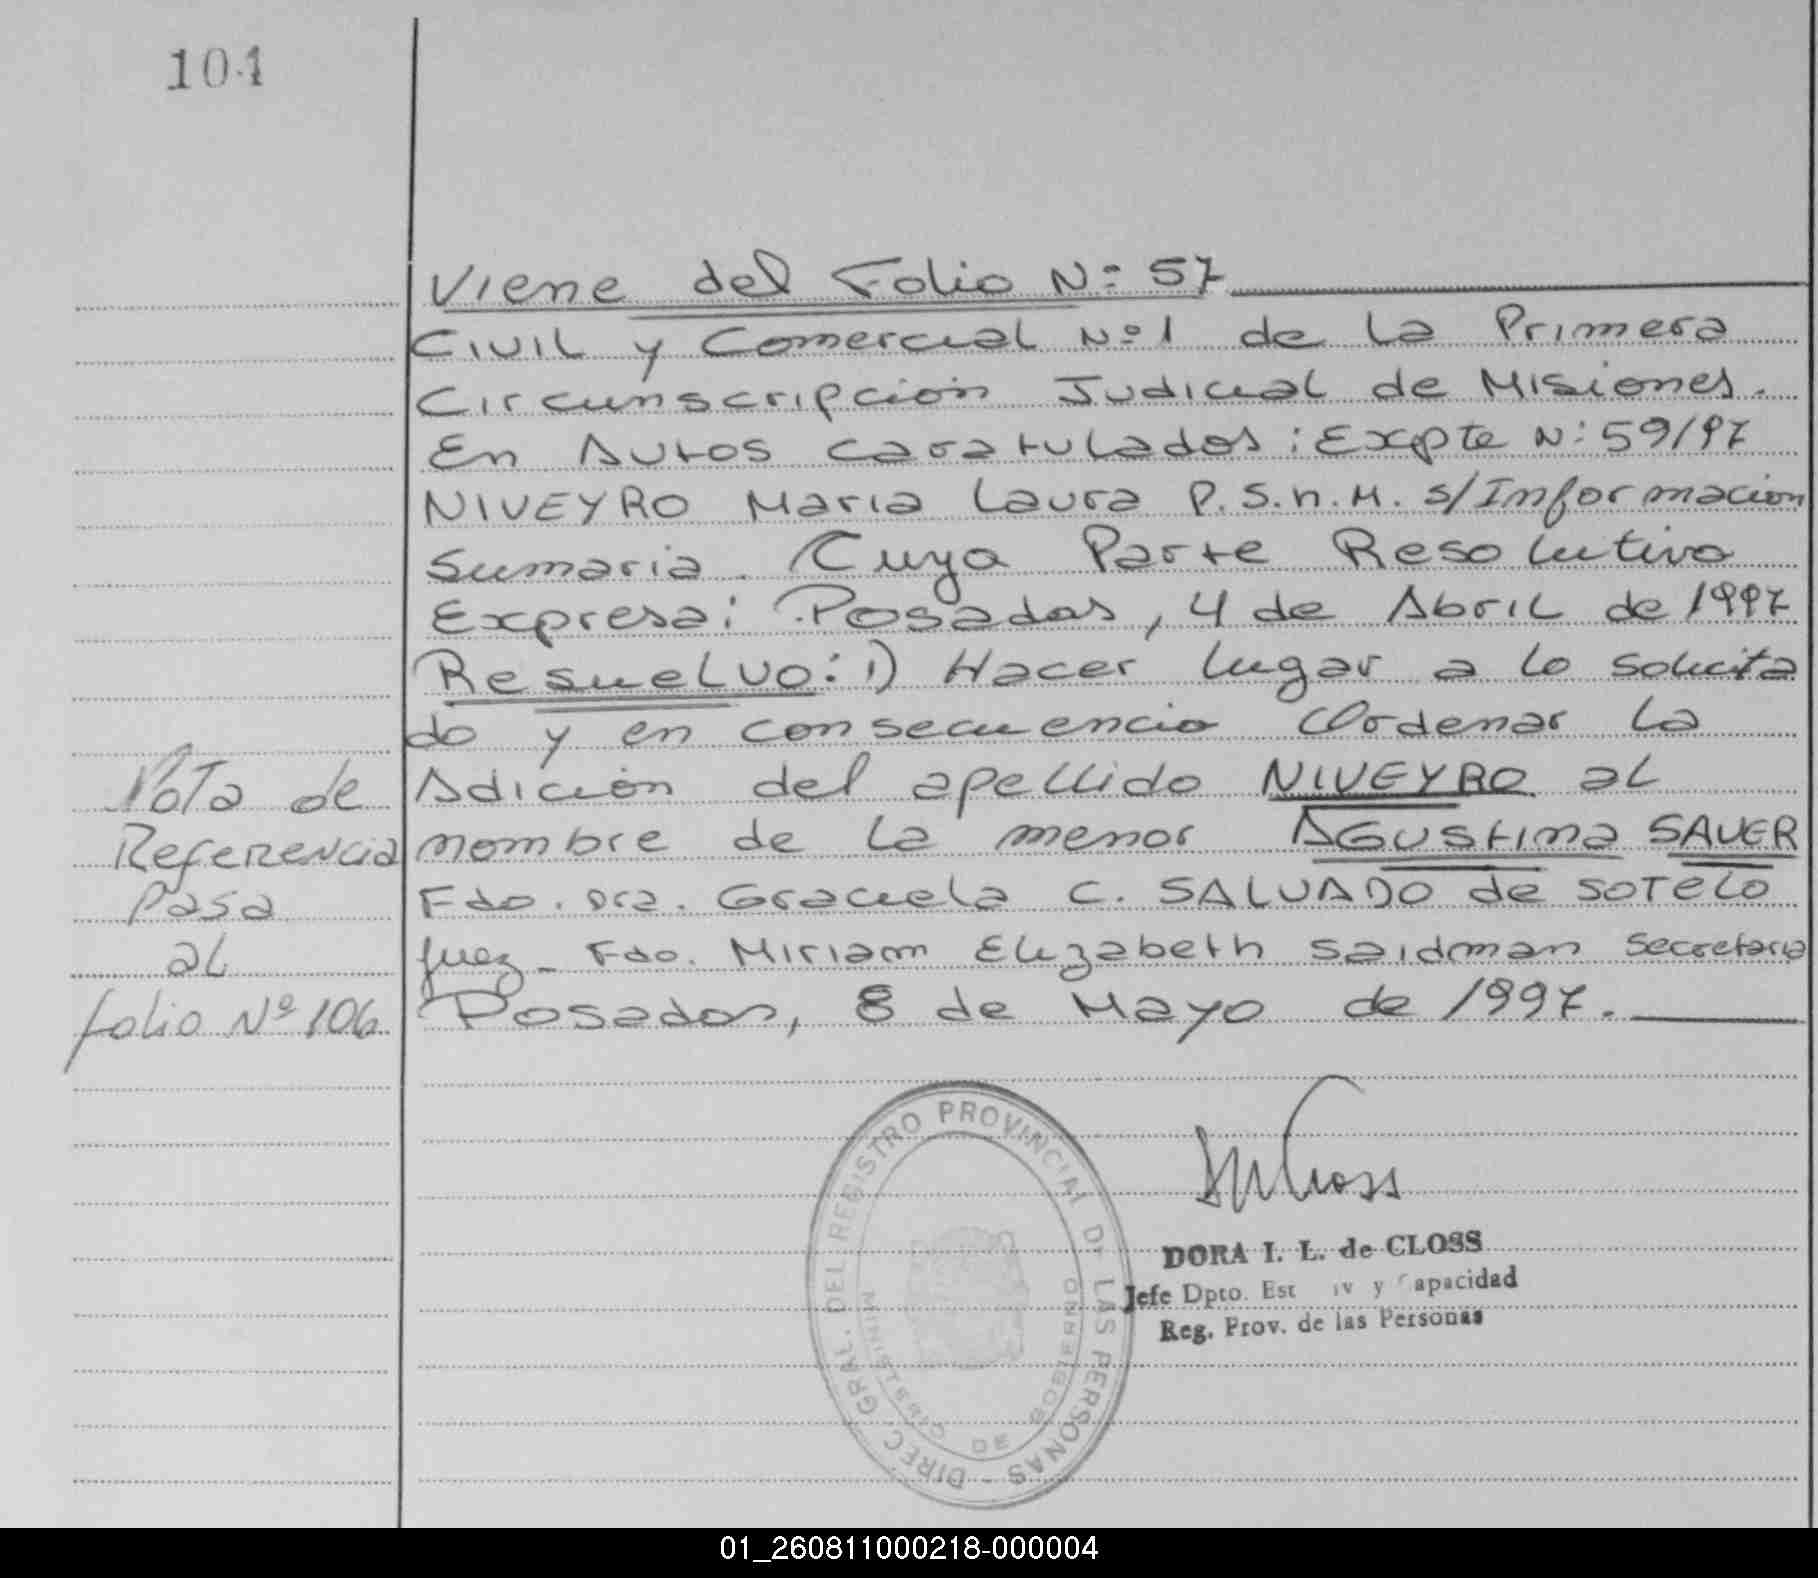 104
Viene del Folio Nº 57
Civil y Comercial Nº 1 de la Primera
Circunscripción Judicial de Misiones.
En Autos caratulados: Expte Nº: 59/97
NIVEYRO Maria Laura P.S.h.M. s/Informacion
Sumaria. Cuya Parte Resolutiva
Expresa: Posadas, 4 de Abril de 1997
Resuelvo: 1) Hacer lugar a lo solicita
do y en consecuencia Ordenar la
Adición del apellido NIVEYRO al
nombre de la menor Agustina SAUER
Fdo. Dra. Graciela C. SALVADO de SOTELO
Juez - Fdo. Miriam Elizabeth Saidman Secretaria
Posadas, 8 de Mayo de 1997.
Nota de
Referencia
Pasa
al
folio Nº 106
DIREC. GRAL. DEL REGISTRO PROVINCIAL D LAS PERSONAS -
MINISTERIO DE GOBIERNO
DORA I. L. de CLOSS
Jefe Dpto. Est iv y apacidad
Reg. Prov. de las Personas
01_260811000218-000004